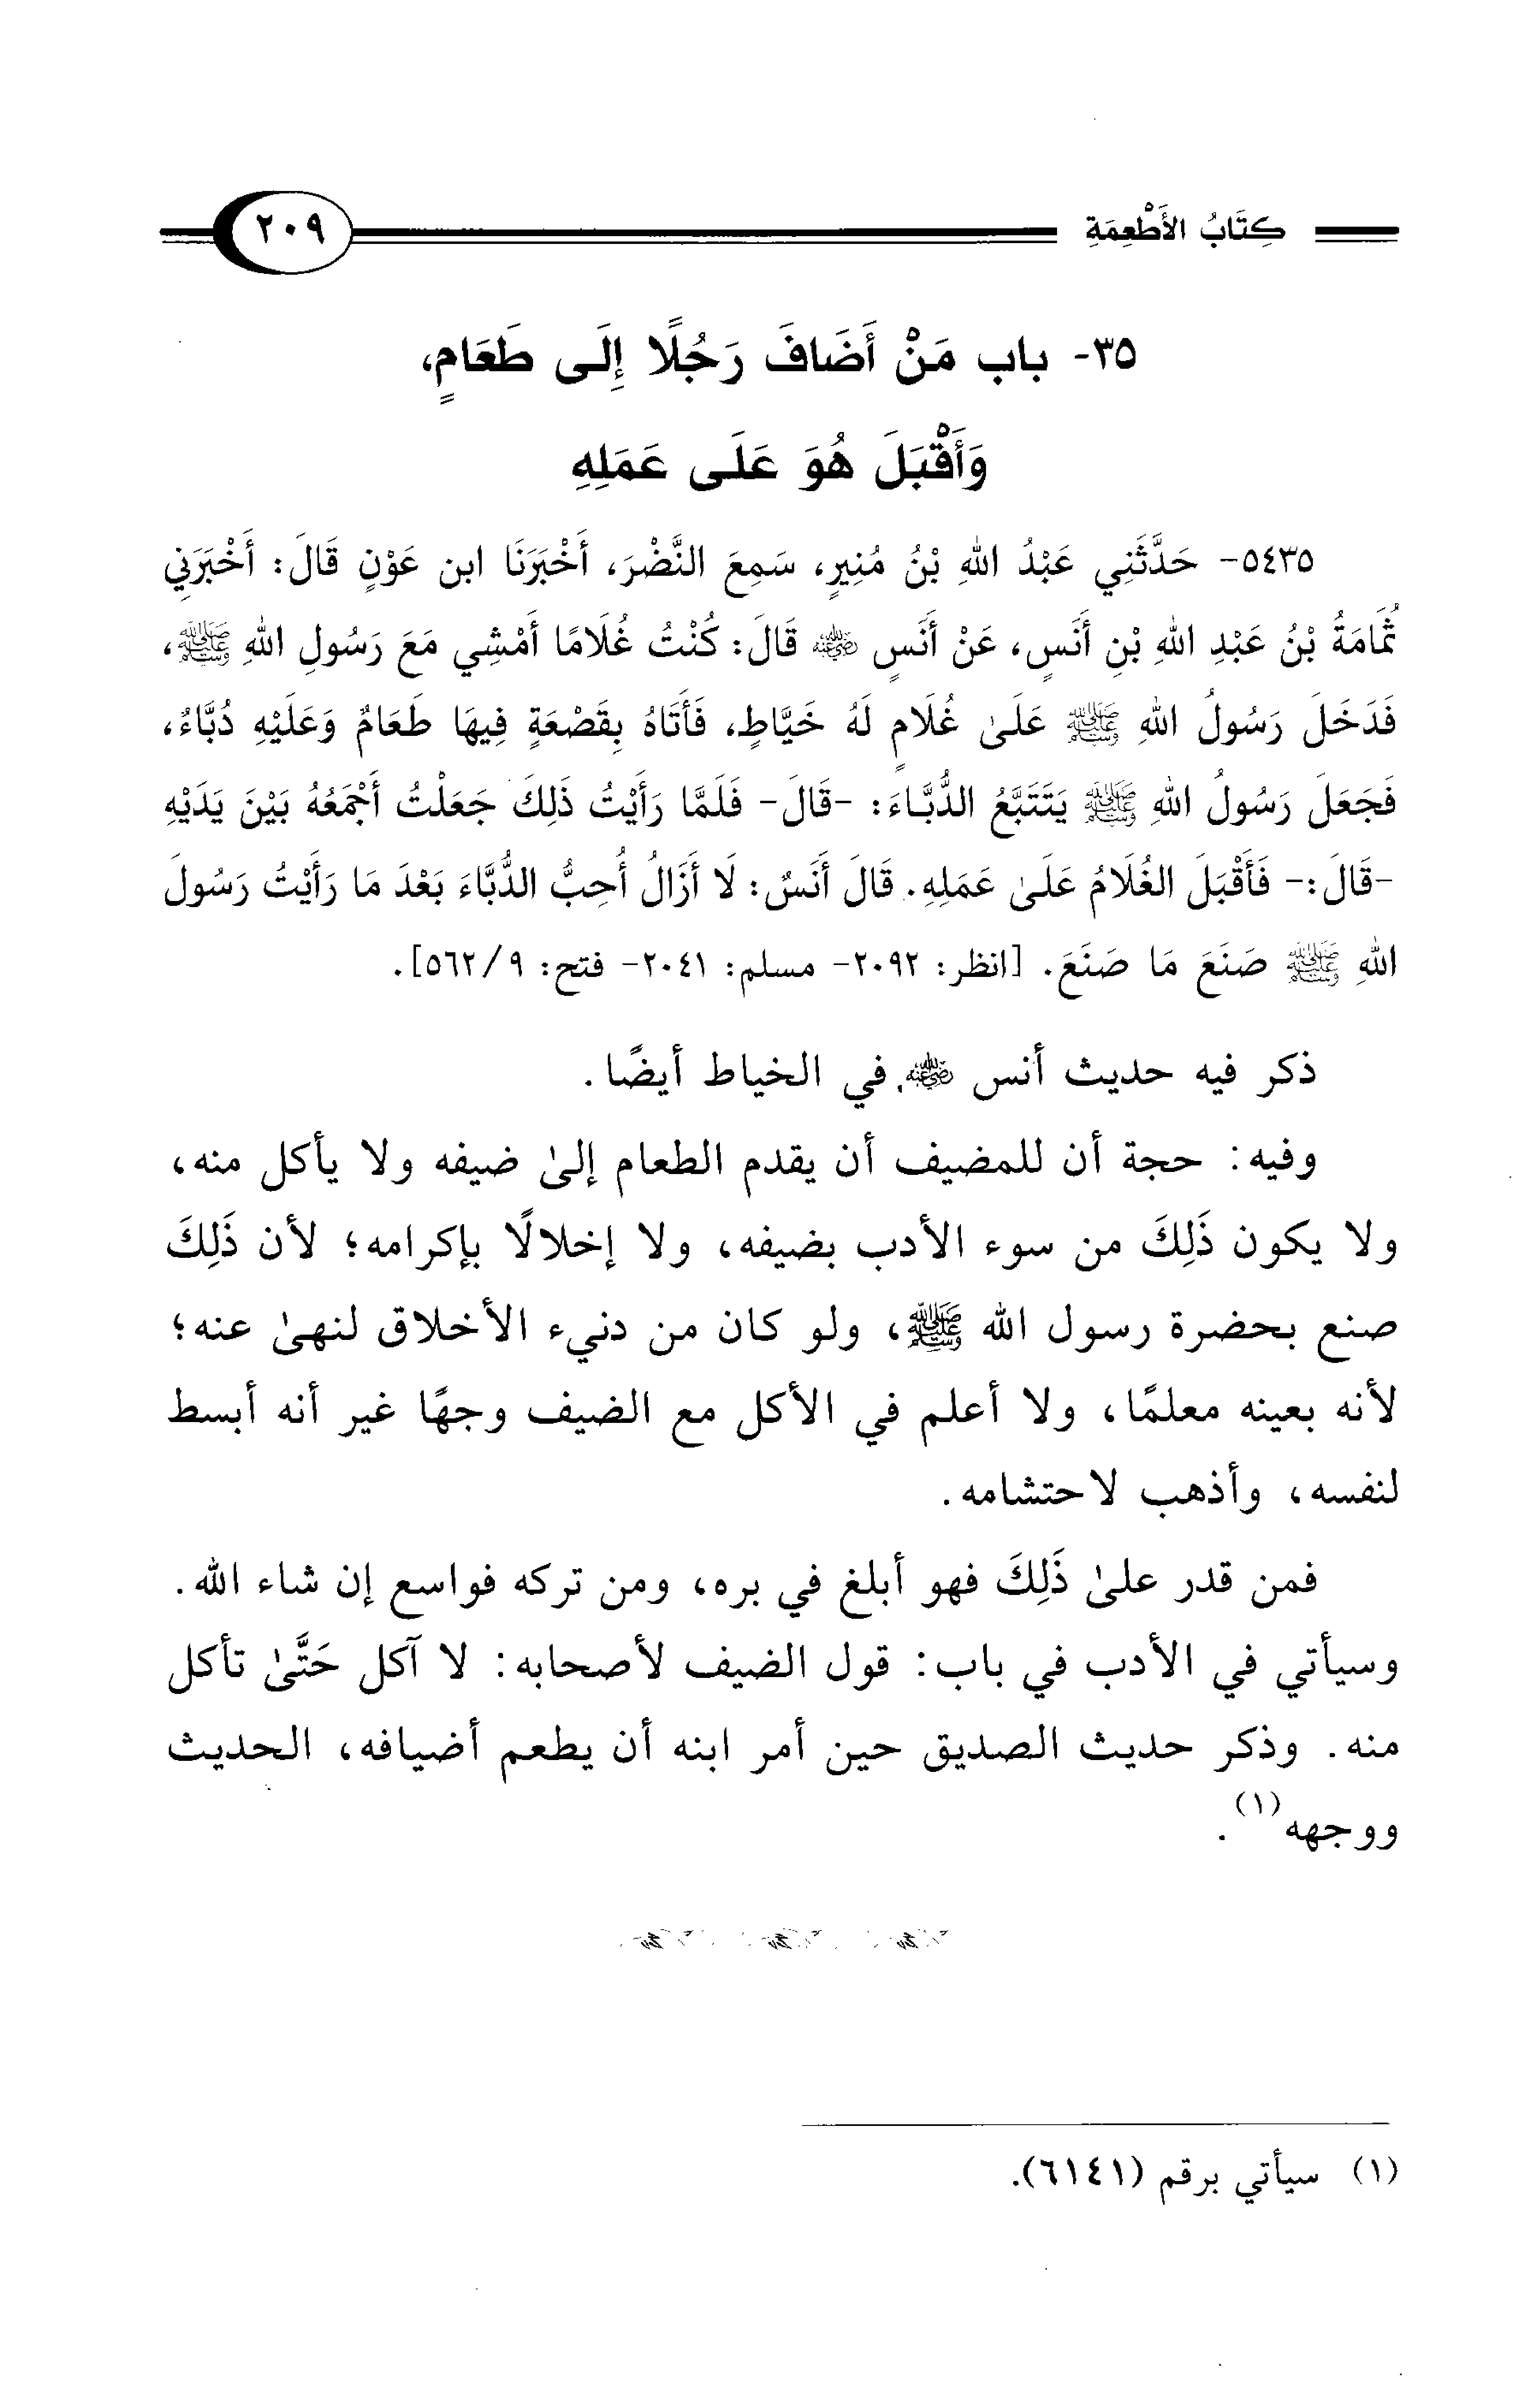 كِتَابُ الأَطْعِمَةِ
٢٠٩
٣٥- باب مَنْ أَضَافَ رَجُلًا إِلَى طَعَامٍ،
وَأَقْبَلَ هُوَ عَلَى عَمَلِهِ
٥٤٣٥- حَدَّثَنِي عَبْدُ اللهِ بْنُ مُنِيرٍ، سَمِعَ النَّضْرَ، أَخْبَرَنَا ابن عَوْنٍ قَالَ: أَخْبَرَنِي
ثُمَامَةُ بْنُ عَبْدِ اللهِ بْنِ أَنَسٍ، عَنْ أَنَسٍ رضي الله عنه قَالَ: كُنْتُ غُلَامًا أَمْشِي مَعَ رَسُولِ اللهِ ﷺ،
فَدَخَلَ رَسُولُ اللهِ ﷺ عَلَىٰ غُلَامٍ لَهُ خَيَّاطٍ، فَأَتَاهُ بِقَصْعَةٍ فِيهَا طَعَامٌ وَعَلَيْهِ دُبَّاءٌ،
فَجَعَلَ رَسُولُ اللهِ ﷺ يَتَتَبَّعُ الدُّبَّاءَ: -قَالَ- فَلَمَّا رَأَيْتُ ذَلِكَ جَعَلْتُ أَجْمَعُهُ بَيْنَ يَدَيْهِ
-قَالَ:- فَأَقْبَلَ الغُلَامُ عَلَىٰ عَمَلِهِ. قَالَ أَنَسٌ: لَا أَزَالُ أُحِبُّ الدُّبَّاءَ بَعْدَ مَا رَأَيْتُ رَسُولَ
اللهِ ﷺ صَنَعَ مَا صَنَعَ. [انظر: ٢٠٩٢- مسلم: ٢٠٤١- فتح: ٩/ ٥٦٢].
ذكر فيه حديث أنس رضي الله عنه في الخياط أيضًا.
وفيه: حجة أن للمضيف أن يقدم الطعام إلىٰ ضيفه ولا يأكل منه،
ولا يكون ذَلِكَ من سوء الأدب بضيفه، ولا إخلالًا بإكرامه؛ لأن ذَلِكَ
صنع بحضرة رسول الله ﷺ، ولو كان من دنيء الأخلاق لنهىٰ عنه؛
لأنه بعينه معلمًا، ولا أعلم في الأكل مع الضيف وجهًا غير أنه أبسط
لنفسه، وأذهب لاحتشامه.
فمن قدر علىٰ ذَلِكَ فهو أبلغ في بره، ومن تركه فواسع إن شاء الله.
وسيأتي في الأدب في باب: قول الضيف لأصحابه: لا آكل حَتَّىٰ تأكل
منه. وذكر حديث الصديق حين أمر ابنه أن يطعم أضيافه، الحديث
ووجهه(١).
(١) سيأتي برقم (٦١٤١).